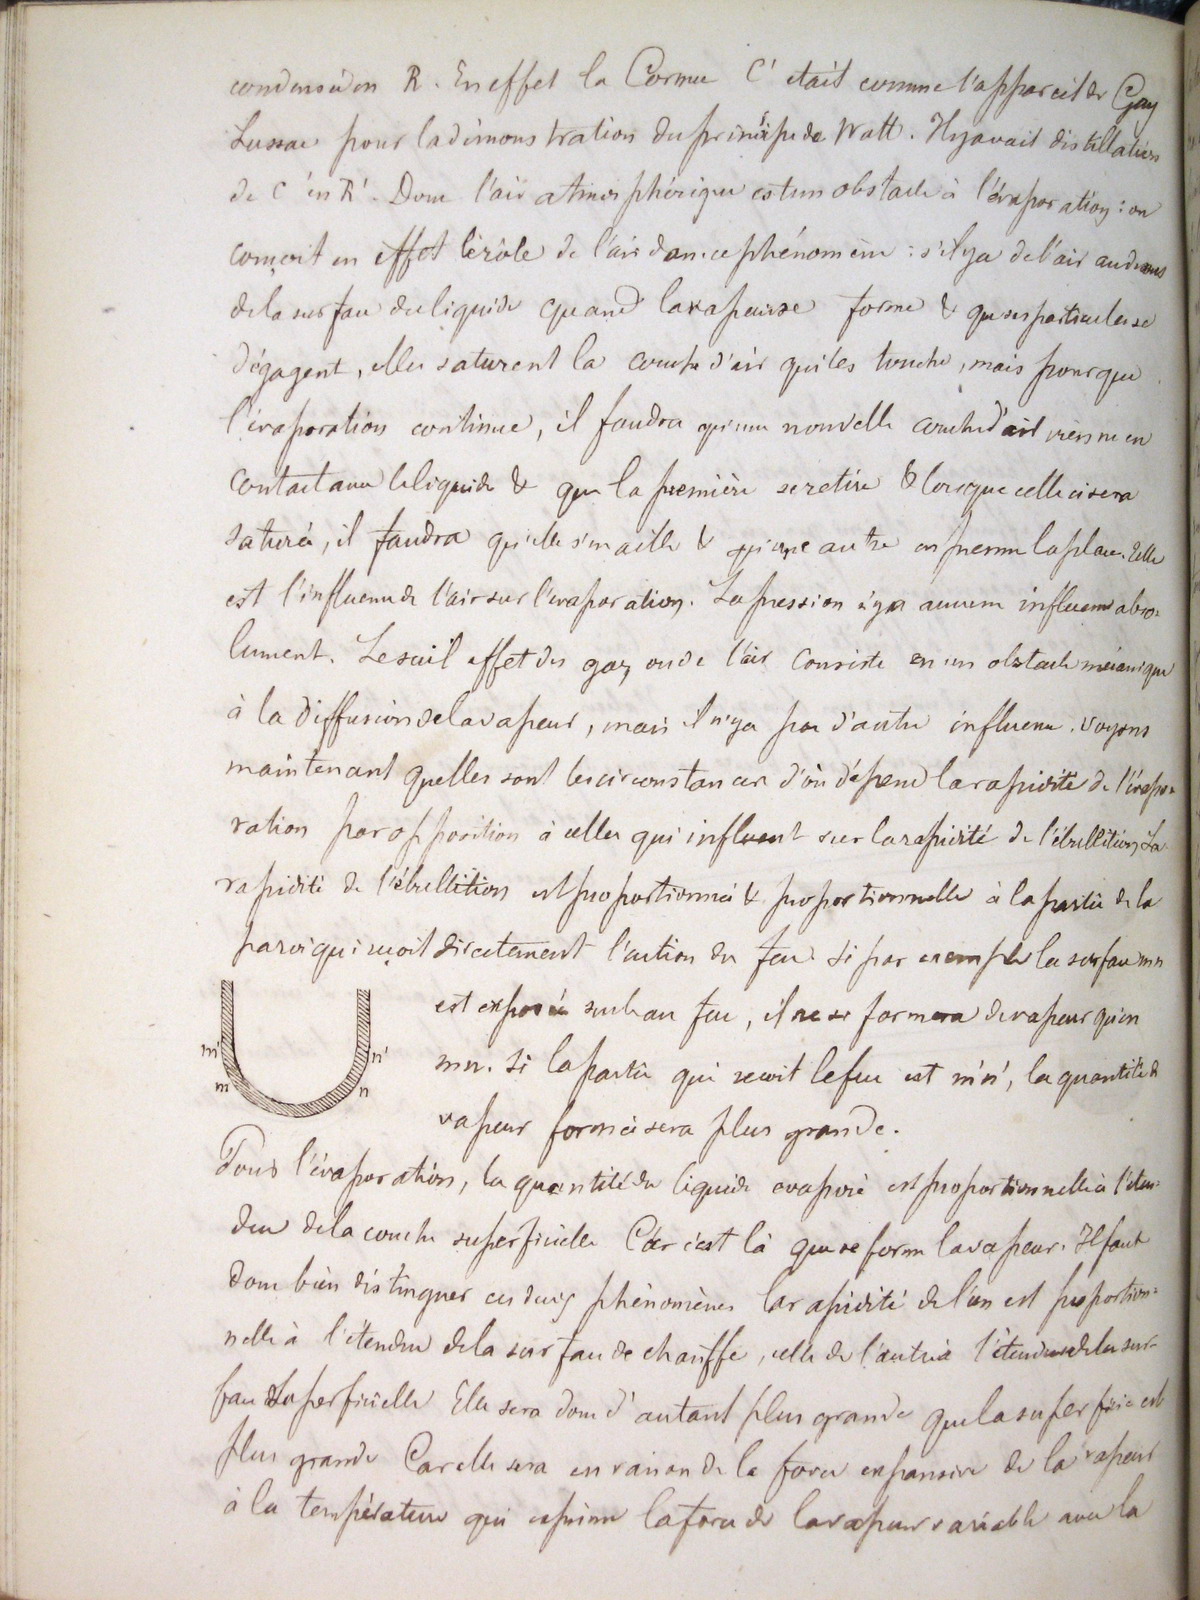 condensation R. En effet la Cornue C' était comme l'appareil de Gay
Lussac pour la démonstration du principe de Watt. Il y avait distillation
de C' en R'. Donc l'air atmosphérique est un obstacle à l'évaporation : on
conçoit en effet le rôle de l'air dans ce phénomène : s'il y a de l'air au dessus
de la surface du liquide quand la vapeur se forme & que ses particules se
dégagent, elles saturent la couche d'air qui les touche, mais pour que
l'évaporation continue, il faudra qu'une nouvelle couche d'air vienne en
contact avec le liquide & que la première se retire & lorsque celle ci sera
saturée, il faudra qu'elle s'en aille & qu'une autre en prenne la place. Telle
est l'influence de l'air sur l'évaporation. La pression n'y a aucune influence abso-
lument. Le seul effet des gaz ou de l'air consiste en un obstacle mécanique
à la diffusion de la vapeur, mais il n'y a pas d'autre influence. Voyons
maintenant quelles sont les circonstances d'où dépend la rapidité de l'évapo-
ration par opposition à celles qui influent sur la rapidité de l'ébullition. La
rapidité de l'ébullition est proportionnée & proportionnelle à la partie de la
paroi qui reçoit directement l'action du feu. Si par exemple la surface mn
est exposée seule au feu, il ne se formera de vapeur qu'en
mn. Si la partie qui reçoit le feu est m'n', la quantité de
vapeur formée sera plus grande.
m'
n'
m
n
Dans l'évaporation, la quantité du liquide évaporé est proportionnelle à l'éten-
due de la couche superficielle Car c'est là que se forme la vapeur. Il faut
donc bien distinguer ces deux phénomènes la rapidité de l'un est proportion-
nelle à l'étendue de la surface de chauffe, celle de l'autre à l'étendue de la sur-
face superficielle Elle sera donc d'autant plus grande que la superficie est
plus grande Car elle sera en raison de la force expansive de la vapeur
à la température qui exprime la force de la vapeur variable avec la